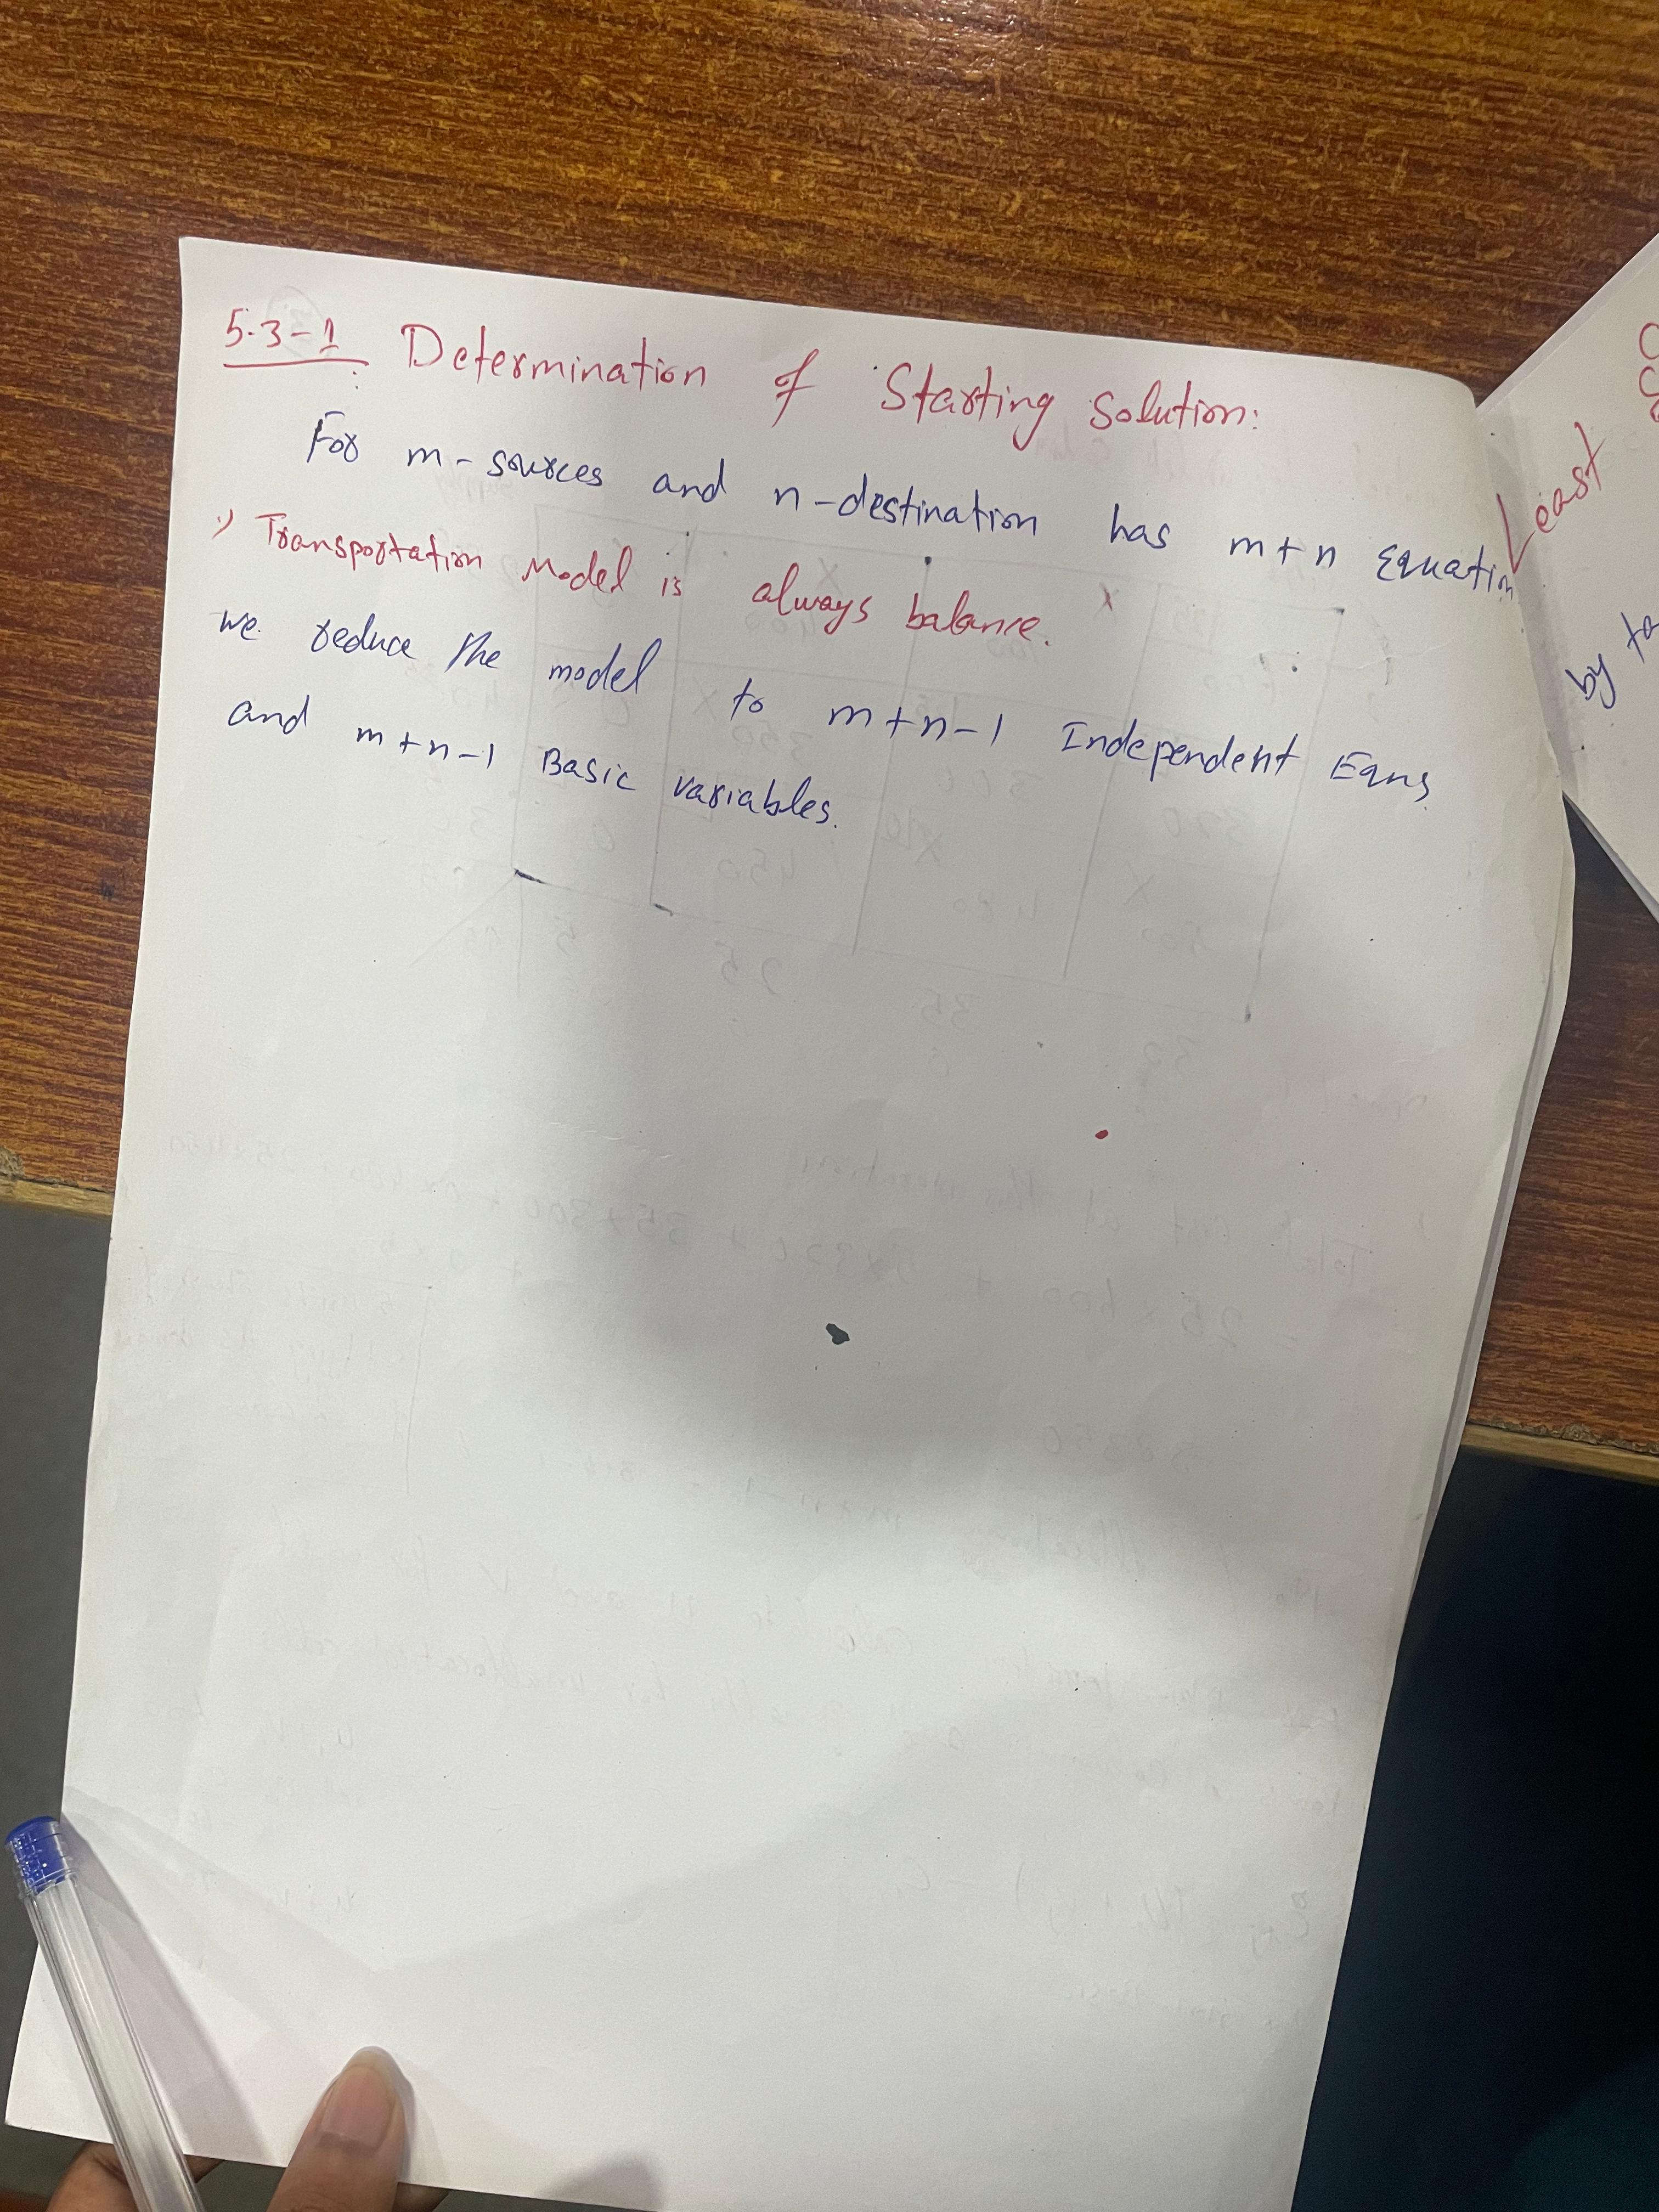 5.3-1 Determination of Starting Solution:
For m-sources and n-destination has m+n Equation
i) Transportation Model is always balance.
we reduce the model to m+n-1 Independent Eqns
and m+n-1 Basic variables.
Least
by